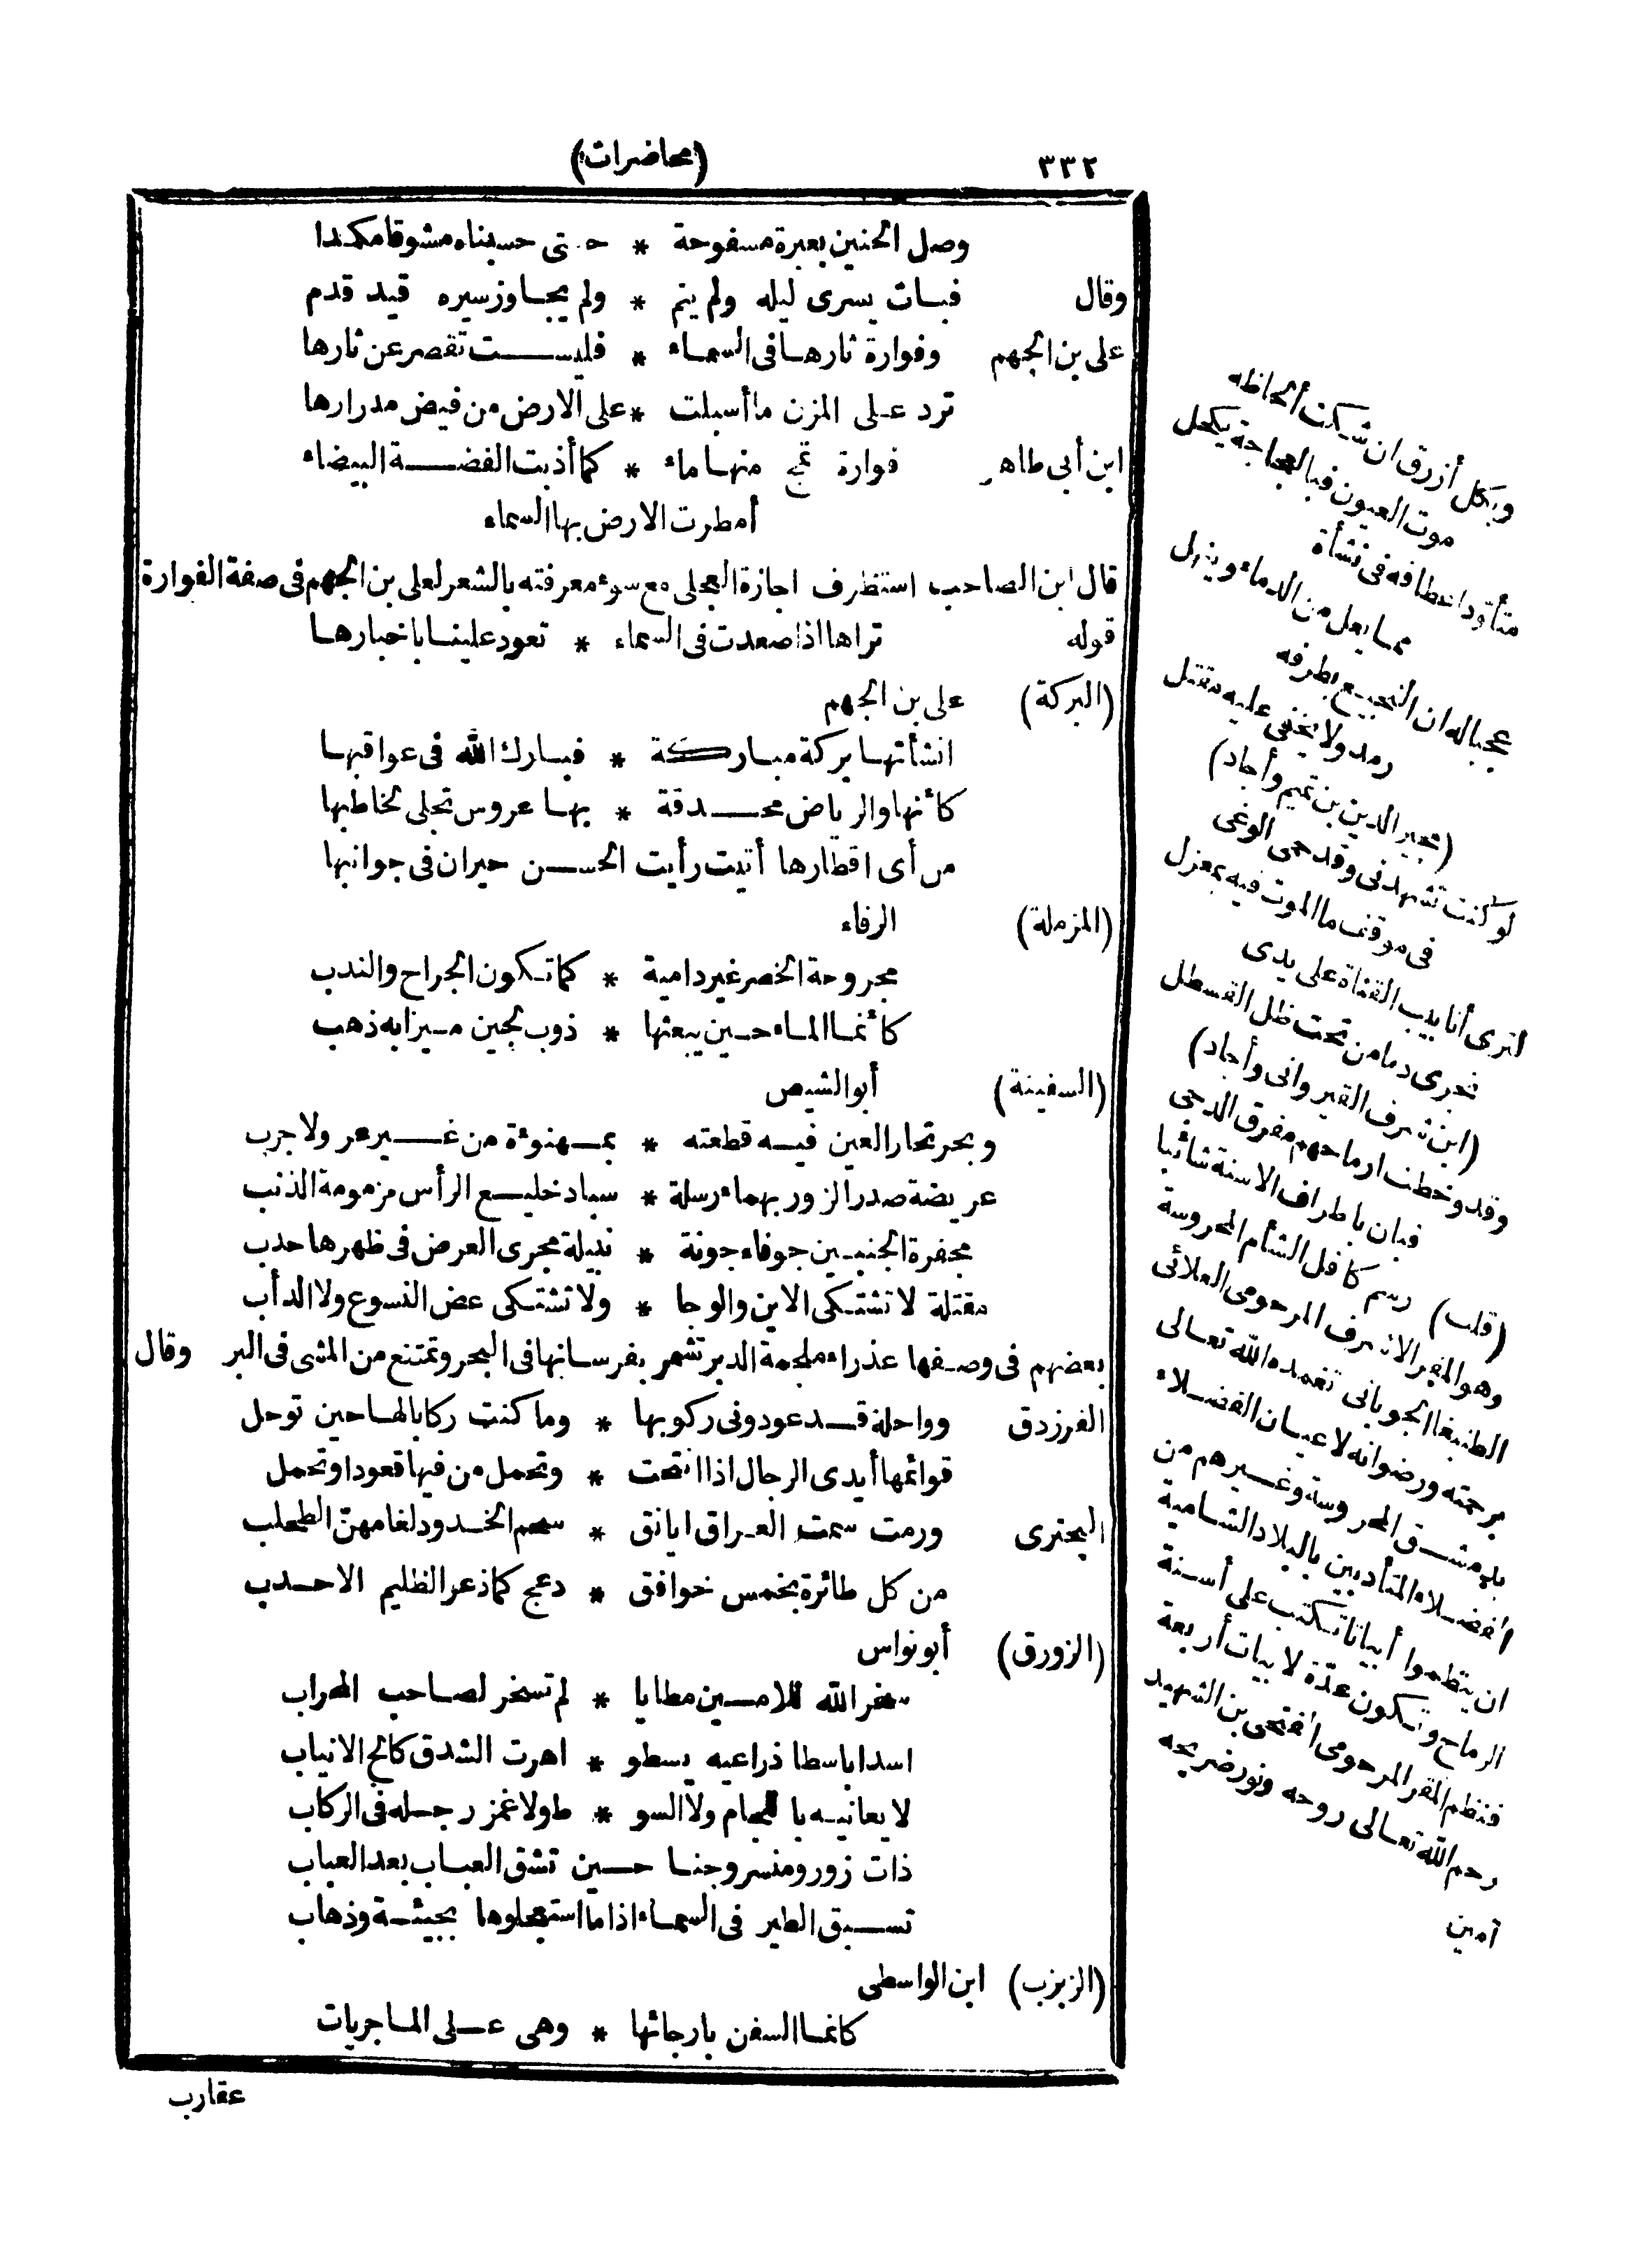 ٣٣٢
(محاضرات)
وصل الحنين بعبرة مسفوحة * حتى حسبناه مشوقا مكمدا
وقال فبات يسرى ليله ولم ينم * ولم يجاوز سيره قيد قدم
على بن الجهم وفوارة ثارها فى السماء * فليست تقصر عن ثارها
ترد على المزن ما أسبلت * على الارض من فيض مدرارها
ابن أبى طاهر فوارة تمج منها ماء * كما أذبت الفضة البيضاء
أمطرت الارض بها السماء
قال ابن الصاحب استظرف اجازة العجلى مع سوء معرفته بالشعر لعلى بن الجهم فى صفة الفوارة
قوله تراها اذا صعدت فى السماء * تعود علينا باخبارها
(البركة) على بن الجهم
انشأتها بركة مباركة * فبارك الله فى عواقبها
كأنها والرياض محدقة * بها عروس تجلى لخاطبها
من أى اقطارها أتيت رأيت الحسن حيران فى جوانبها
(المزملة) الرفاء
مجروحة الخصر غير دامية * كما تكون الجراح والندب
كأنما الماء حين يبعثها * ذوب لجين ميزابه ذهب
(السفينة) أبو الشيص
وبحر تحار العين فيه قطعته * بمهنوءة من غير عر ولا جرب
عريضة صدر الزور بهماء رسلة * سباد خليع الرأس مزمومة الذنب
مجفرة الجنبين جوفاء جونة * نبيلة مجرى العرض فى ظهرها حدب
مقتلة لا تشتكى الاين والوجا * ولا تشتكى عض النسوع ولا الدأب
بعضهم فى وصفها عذراء ملجمة الدبر تشمر بفرسانها فى البحر وتمتنع من المشى فى البر وقال
الفرزدق وواحلة قد عودونى ركوبها * وما كنت ركابا لها حين توحل
قوائمها أيدى الرجال اذا انتحت * وتحمل من فيها قعودا وتحمل
البحترى ورمت سمت العراق ايانق * سحم الخدود لغامهن الطحلب
من كل طائرة بخمس خوافق * دعج كما ذعر الظليم الاحدب
(الزورق) أبو نواس
سخر الله للامين مطايا * لم تسخر لصاحب المحراب
اسدا باسطا ذراعيه يسطو * اهرت الشدق كالح الانياب
لا يعانيه باللجام ولا السو * ط ولا غمز رجله فى الركاب
ذات زور ومنسر وجنا حين تشق العباب بعد العباب
تسبق الطير فى السماء اذا ما استعجلوها بجيئة وذهاب
(الزبزب) ابن الواسطى
كانما السفن بارجائها * وهى على الماء جريات
عقارب
وبكل أزرق ان شكت ألحاظه
موت العيون فبالعجاجة يكحل
متأود اعطافه فى نشأة
مما يعل من الدماء وينهل
عجبا له ان النجيع بطرفه
رمد ولا يخفى عليه مقتل
(مجير الدين بن تميم وأجاد)
لو كنت تشهدنى وقد حمى الوغى
فى موقف ما الموت فيه بمعزل
لترى أنابيب القناة على يدى
تجرى دما من تحت ظل القسطل
(ابن شرف القيروانى وأجاد)
وقد وخطت ارماحهم مفرق الدجى
فبان باطراف الاسنة شائبا
(قلت) رسم كافل الشأم المحروسة
وهو المقر الاشرف المرحومى العلائى
الطنبغا الجوبانى تغمده الله تعالى
برحمته ورضوانه لاعيان الفضلاء
بدمشق المحروسة وغيرهم من
الفضلاء المتأدبين بالبلاد الشامية
ان ينظموا أبياتا تكتب على أسنة
الرماح وتكون عدة الابيات أربعة
فنظم المقر المرحومى الفتحى بن الشهيد
رحم الله تعالى روحه ونور ضريحه
آمين